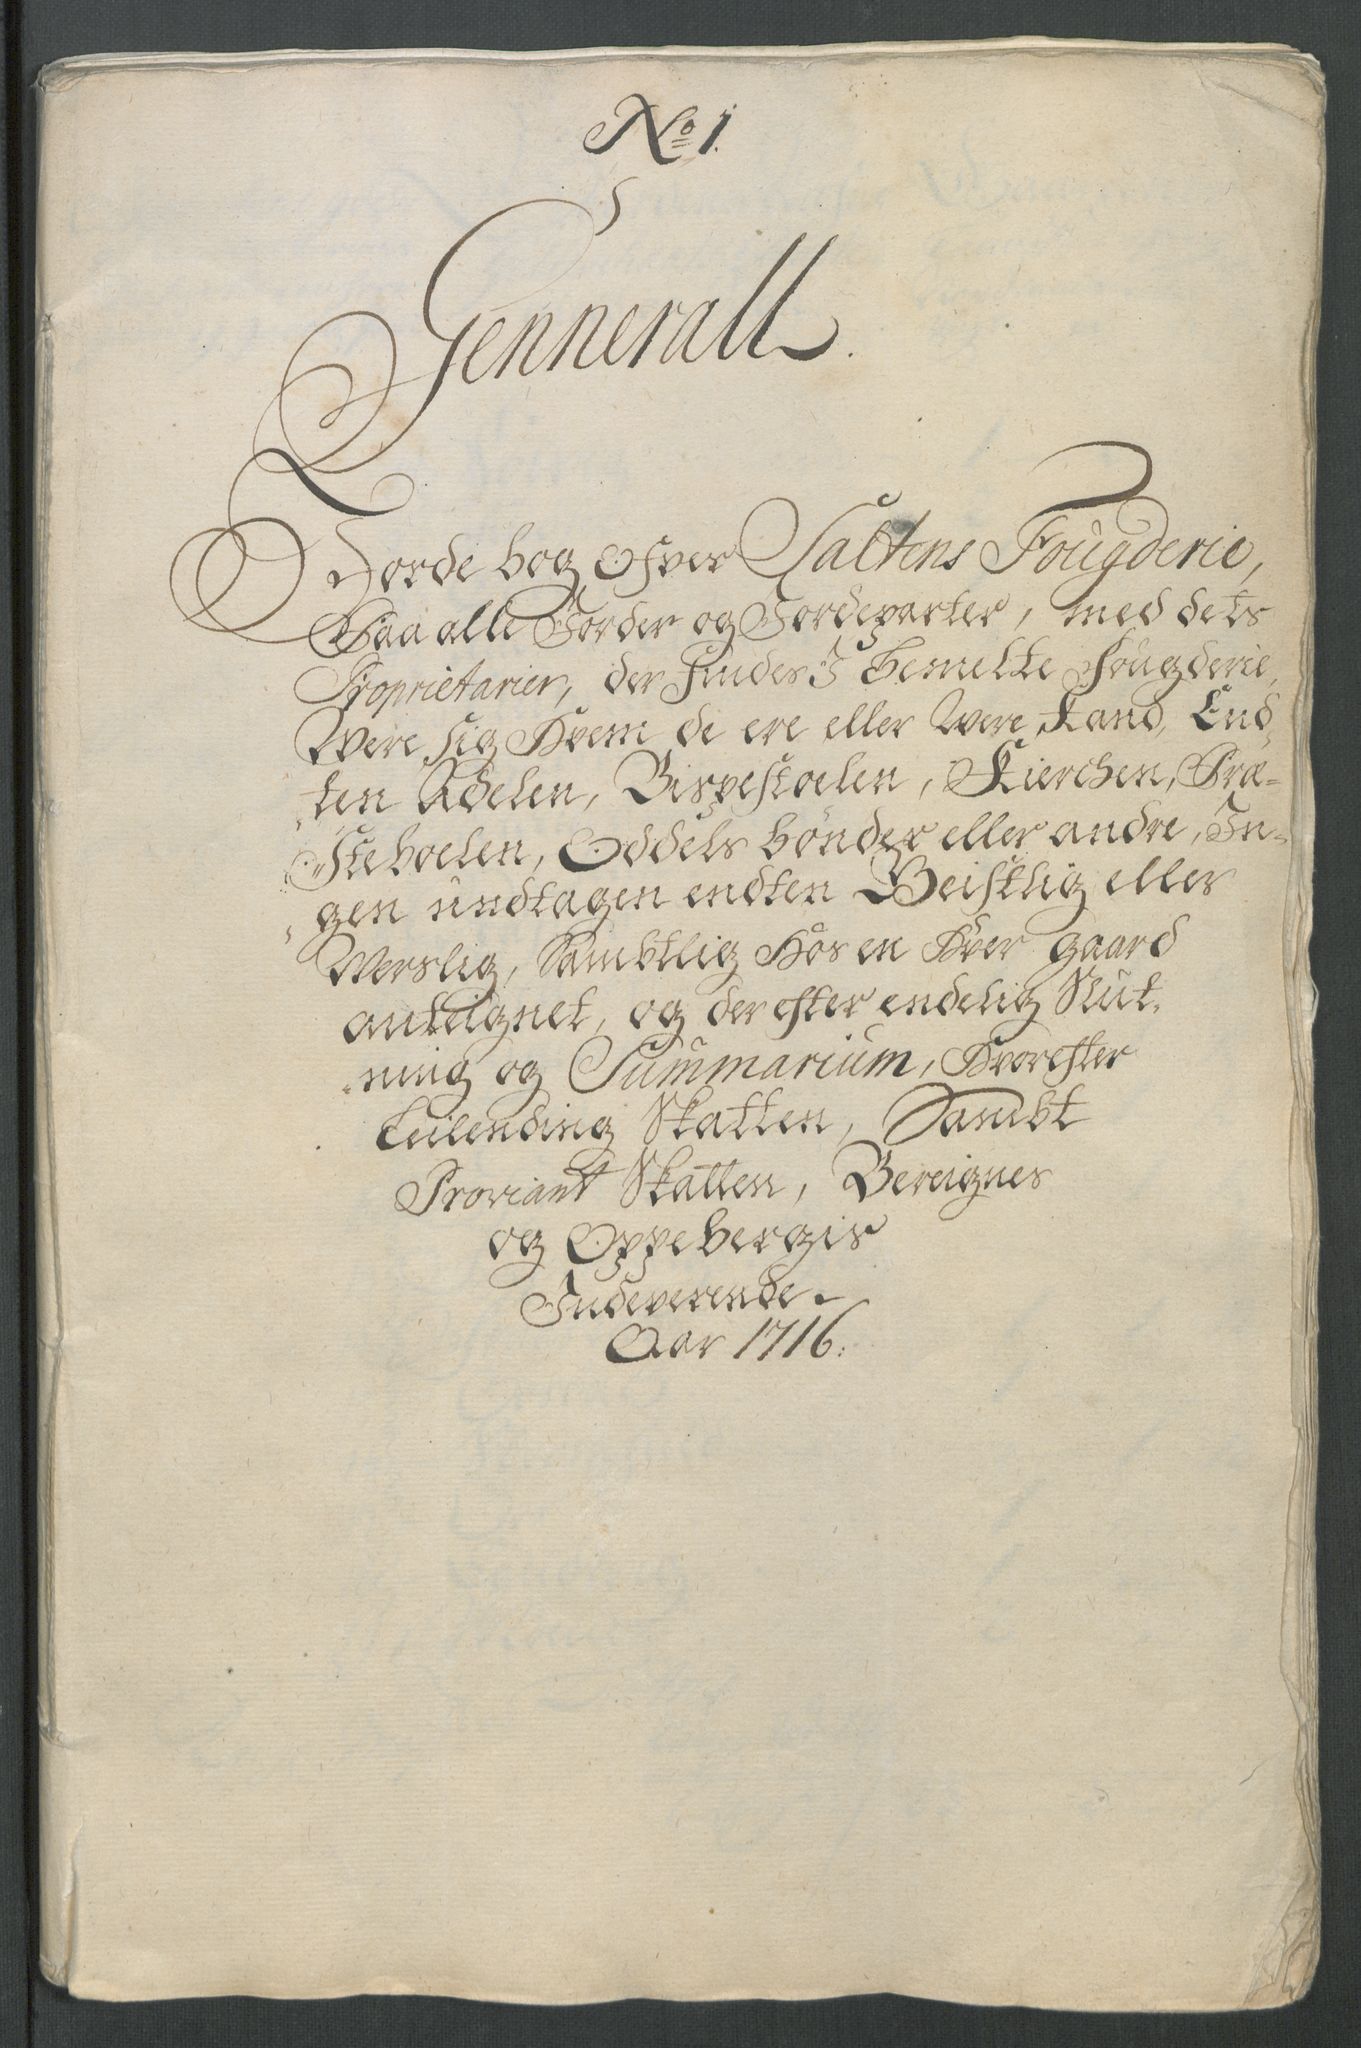 No 1.
Gennerall.
Jorde bog Ofver Saltens Fougderie,
Paa alle Jorder og Jordeparter, med dets
Proprietarier, der findes I bemelte Fougderie,
Were sig Hvem de ere eller Were Kand, End-
ten Adelen, Bispestoelen, Kierchen, Præ-
steboelen, Oddels bønder eller andre, In-
gen undtagen endten Geistlig eller
Werslig, Sambtlig Hos en Hver gaard
anteignet, og der efter endelig Slut-
ning og Summarium, Hvorefter
Leilending Skatten, Sambt
Proviant Skatten, Bereignes
og Oppebergis
Indeverende
Aar 1716.